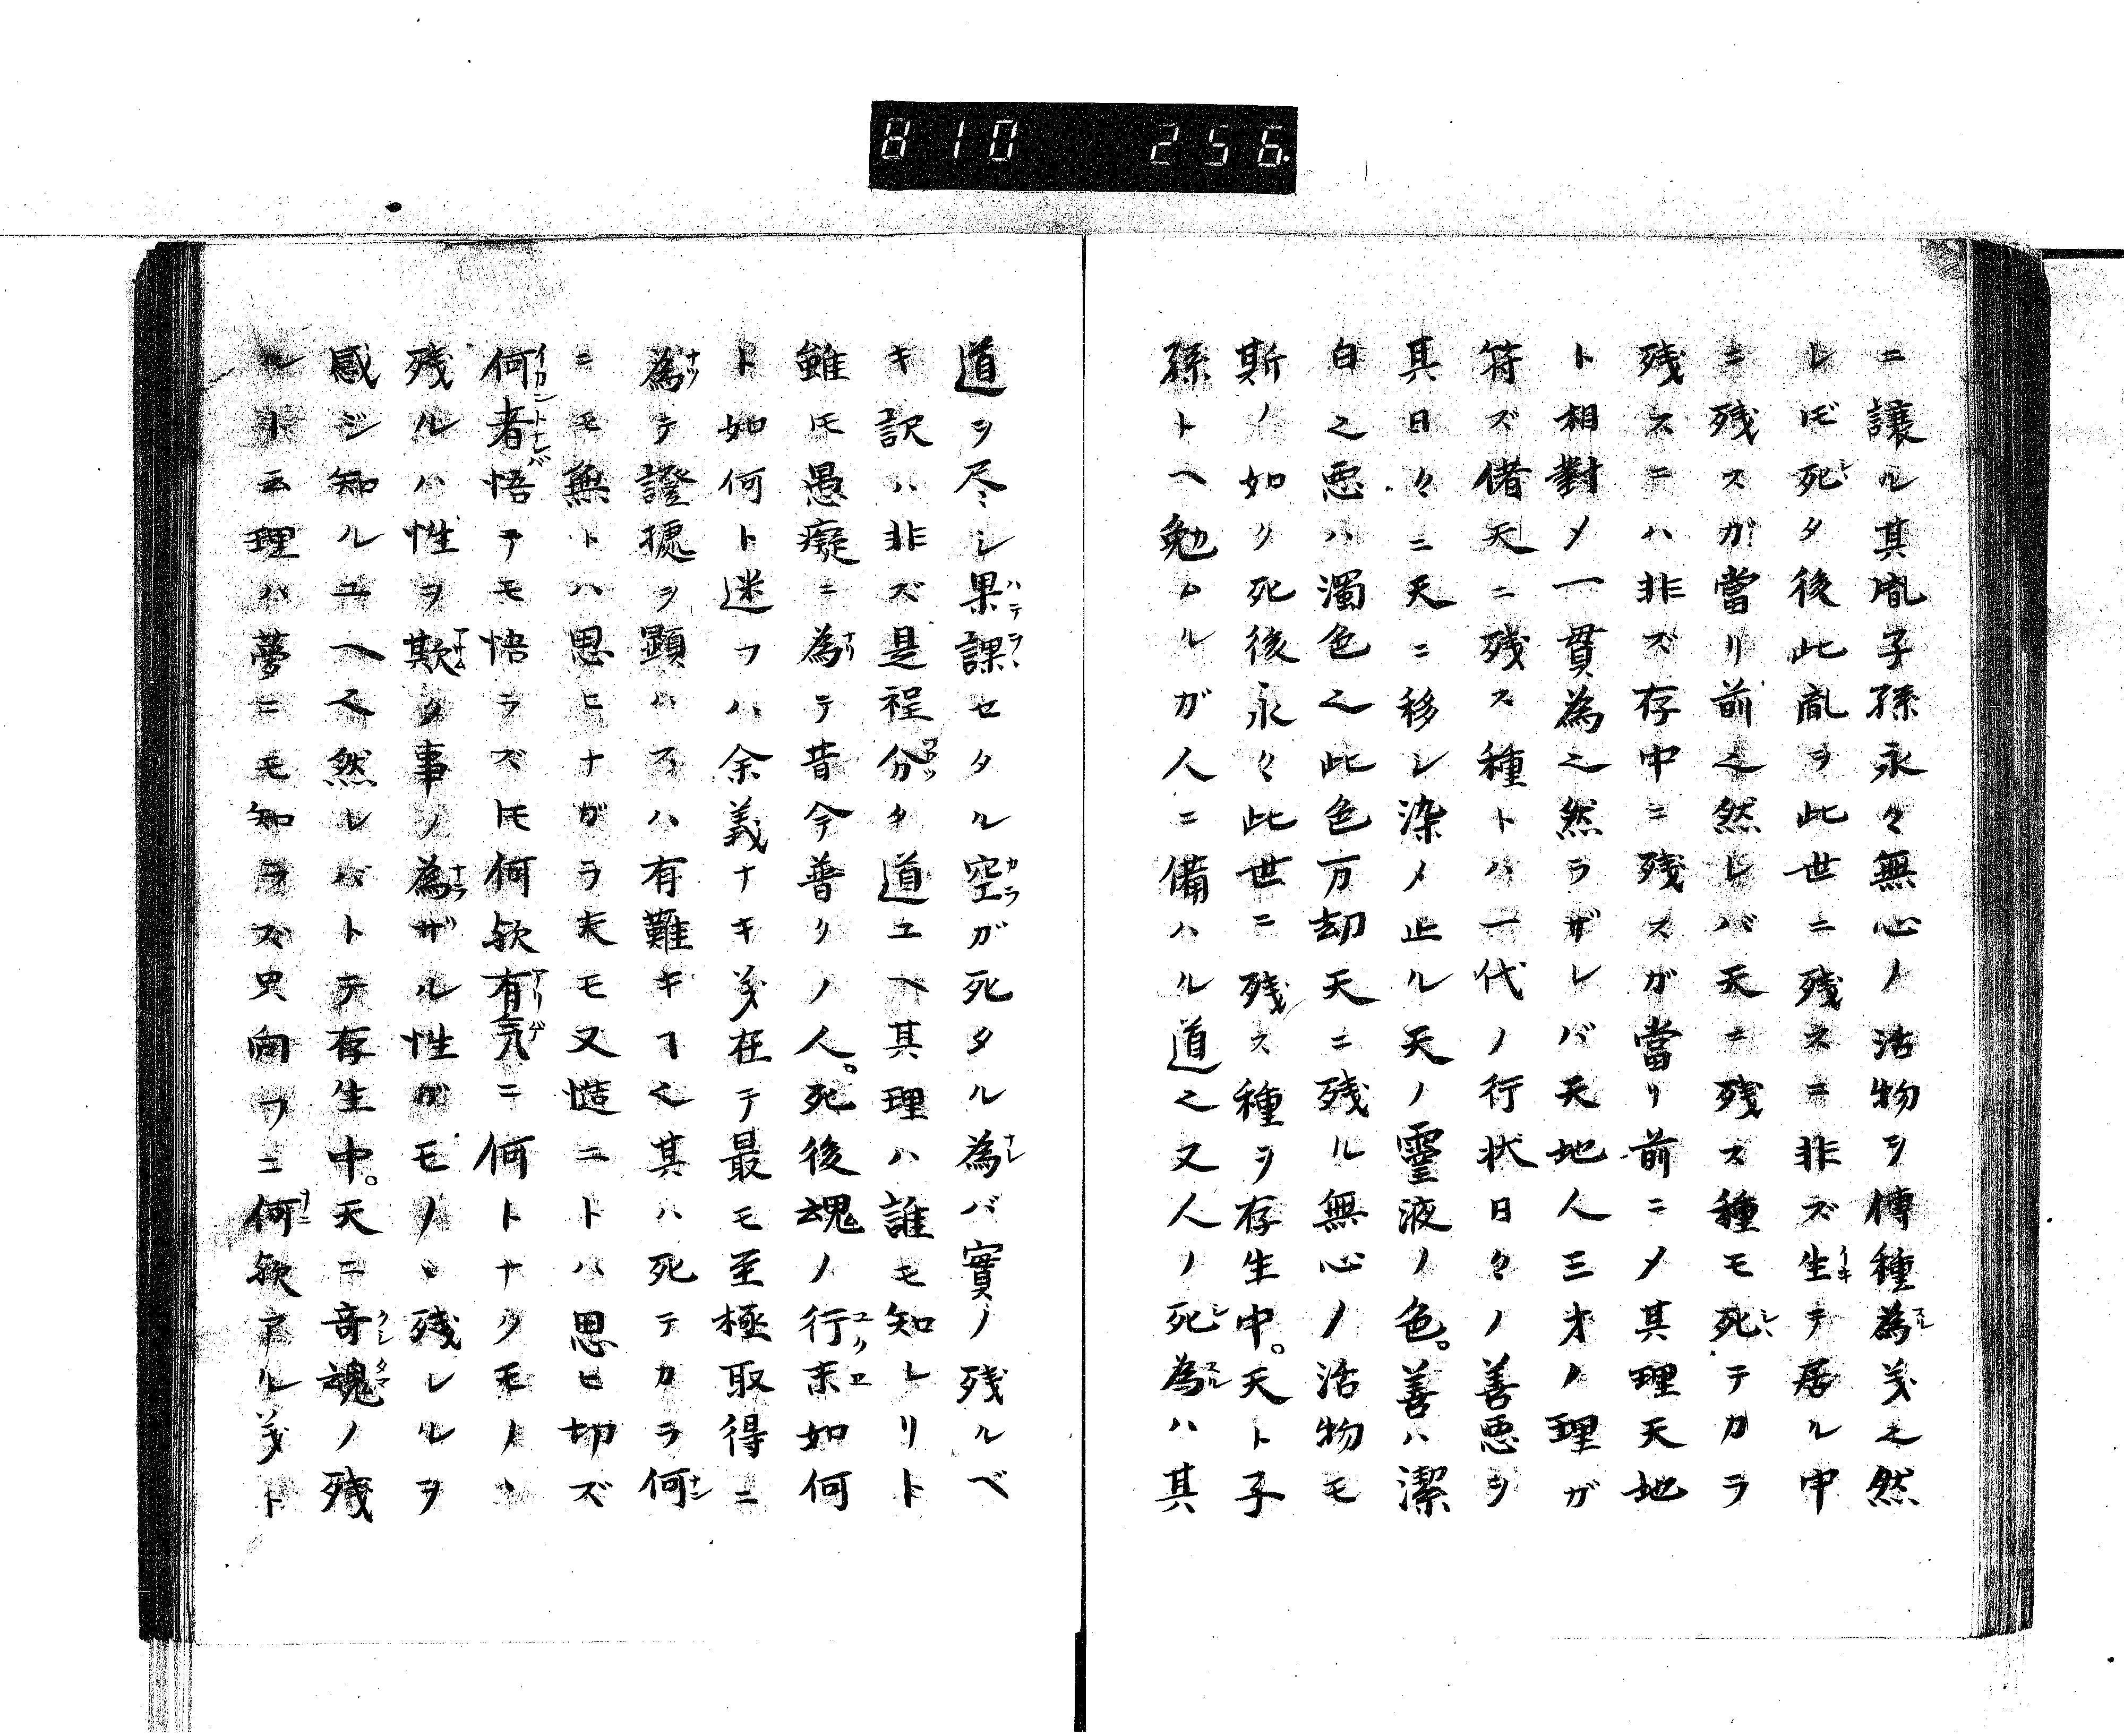 810 256.
ニ譲ル其胤子孫永々無心ノ活物ヲ傳種為義之然
レ𪜈死タ後此胤ヲ此世ニ残スニ非ズ生テ居ル中
ニ残スガ當リ前之然レバ天ニ残ス種モ死テカラ
残スニハ非ズ存中ニ残スガ當リ前ニ〆其理天地
ト相對〆一貫為之然ラザレバ天地人三才ノ理ガ
符ズ偖天ニ残ス種トハ一代ノ行状日々ノ善悪ヲ
其日々ニ天ニ移シ染メ止ル天ノ靈液ノ色。善ハ潔
白之悪ハ濁色之此色万却天ニ残ル無心ノ活物モ
斯ノ如ク死後永々此世ニ残ス種ヲ存生中。天ト子
孫トヘ勉ムルガ人ニ備ハル道之又人ノ死為ハ其
道ヲ尽シ果課セタル空ガ死タル為バ實ノ残ルベ
キ訳ハ非ズ是程分タ道ユヘ其理ハ誰モ知レリト
雖𪜈愚癡ニ為テ昔今普クノ人。死後魂ノ行末如何
ト如何ト迷フハ余義ナキ義在テ最モ至極取得ニ
為テ證拠ヲ顕ハスハ有難キヿ之其ハ死テカラ何
ニモ無トハ思ヒナガラ夫モ又慥ニトハ思ヒ切ズ
何者悟テモ悟ラズ𪜈何欤有気ニ何トナクモノヽ
残ルハ性ヲ欺ク事ノ為ザル性ガモノヽ残レルヲ
感ジ知ルユヘ之然レバトテ存生中。天ニ奇魂ノ残
ルト云理ハ夢ニモ知ラズ只向フニ何欤アル義ト